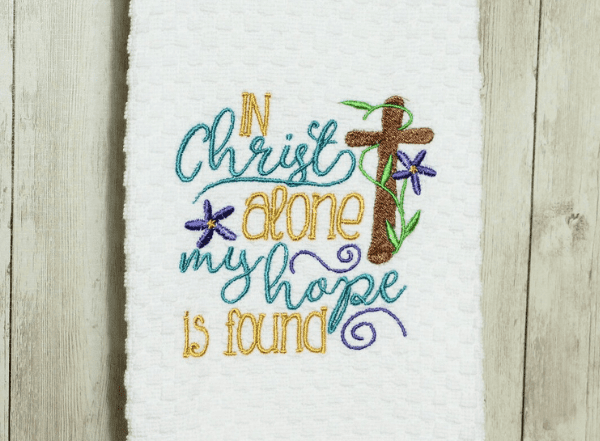 IN
Christ
alone
my hope
is found